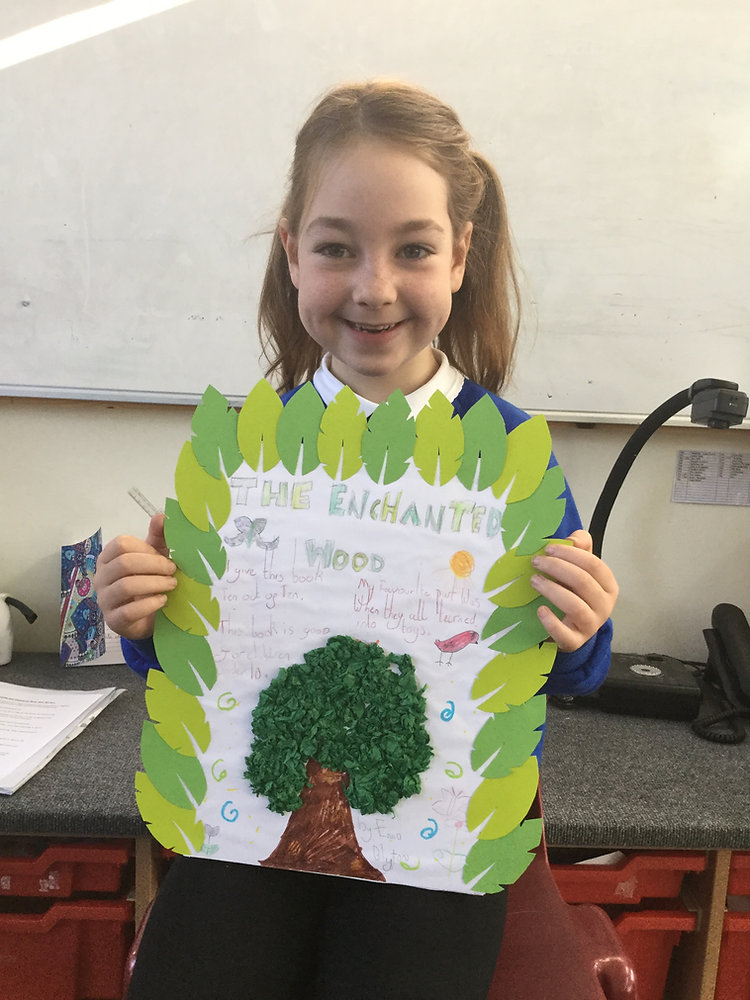 THE ENCHANTED
WOOD
I give this book
Ten out of Ten.
This book is good
for children
My favourite part was
When they all turned
into toys.
by Enid
Blyton